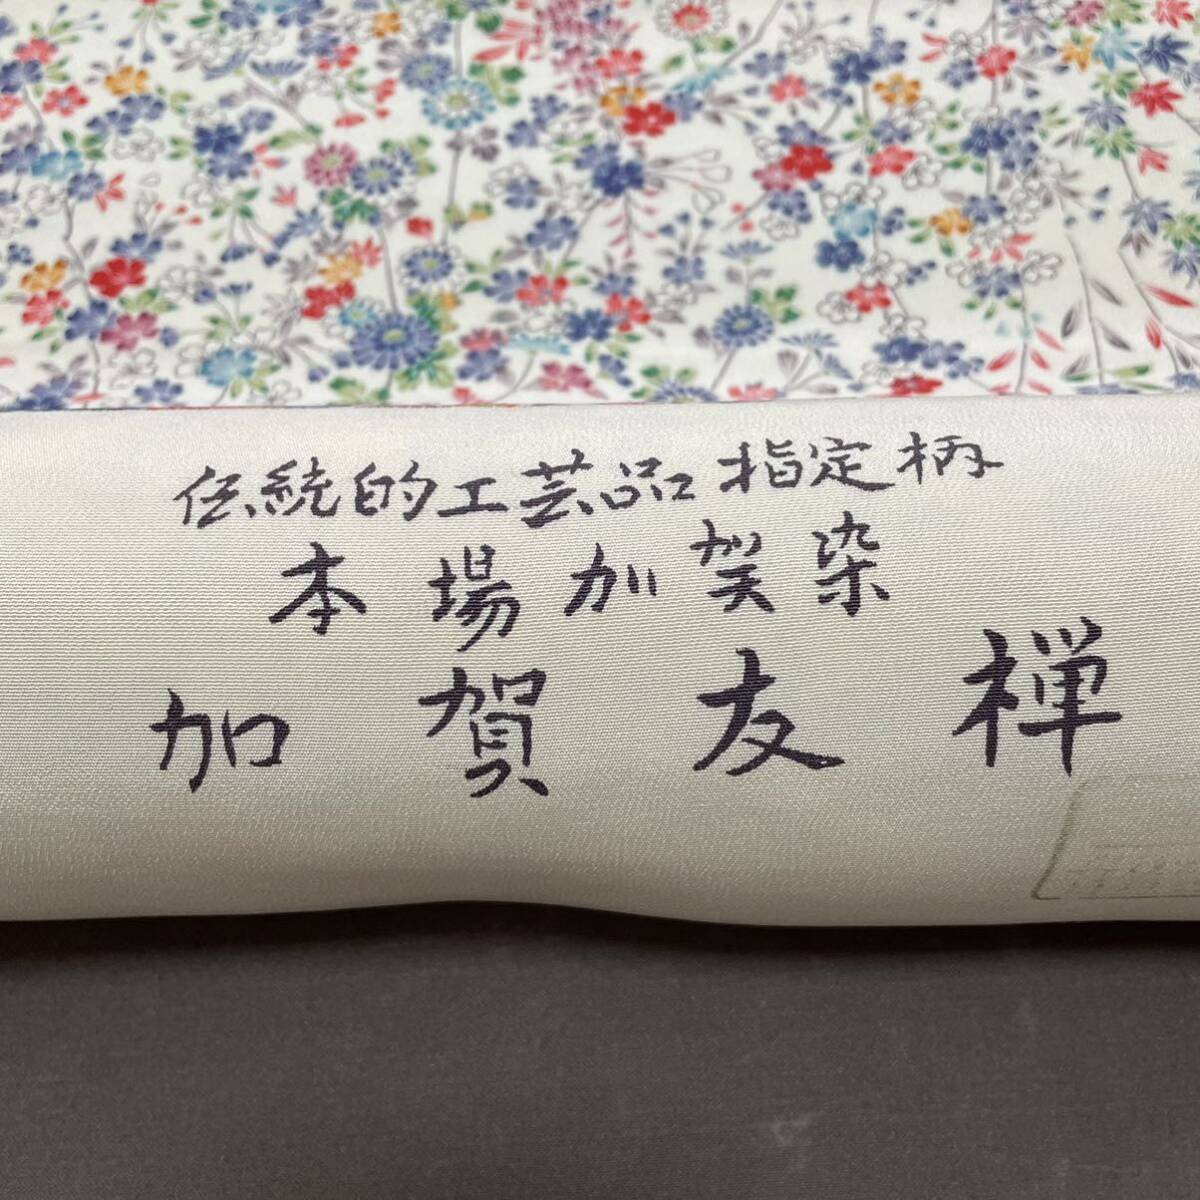 伝統的工芸品指定柄
本場加賀染
加賀友禅